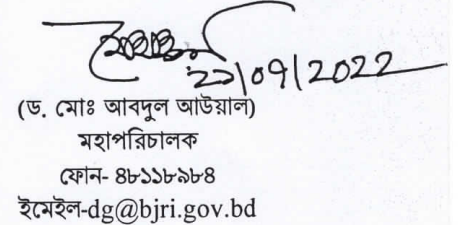 ২১/০৭/২০২২
(ড. মোঃ আবদুল আউয়াল)
মহাপরিচালক
ফোন- ৪৮১১৮৯৮৪
ইমেইল-dg@bjri.gov.bd